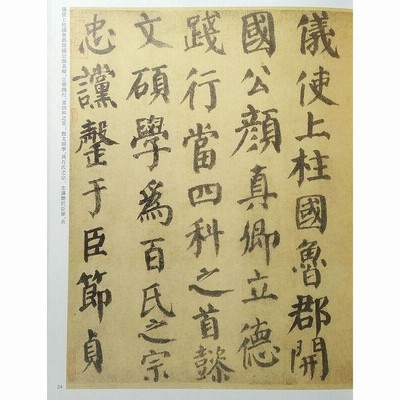 儀使上柱國魯郡開
國公顏真卿立德
踐行當四科之首懿
文碩學爲百氏之宗
忠讜罄于臣節貞
24